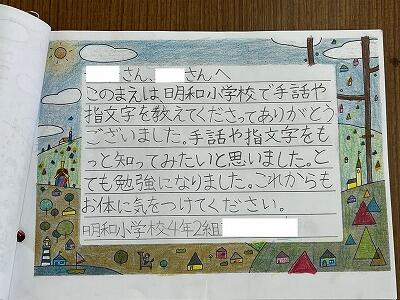 さん、さんへ
このまえは明和小学校で手話や
指文字を教えてくださってありがとう
ございました。手話や指文字をも
っと知ってみたいと思いました。と
ても勉強になりました。これからも
お体に気をつけてください。
明和小学校4年2組